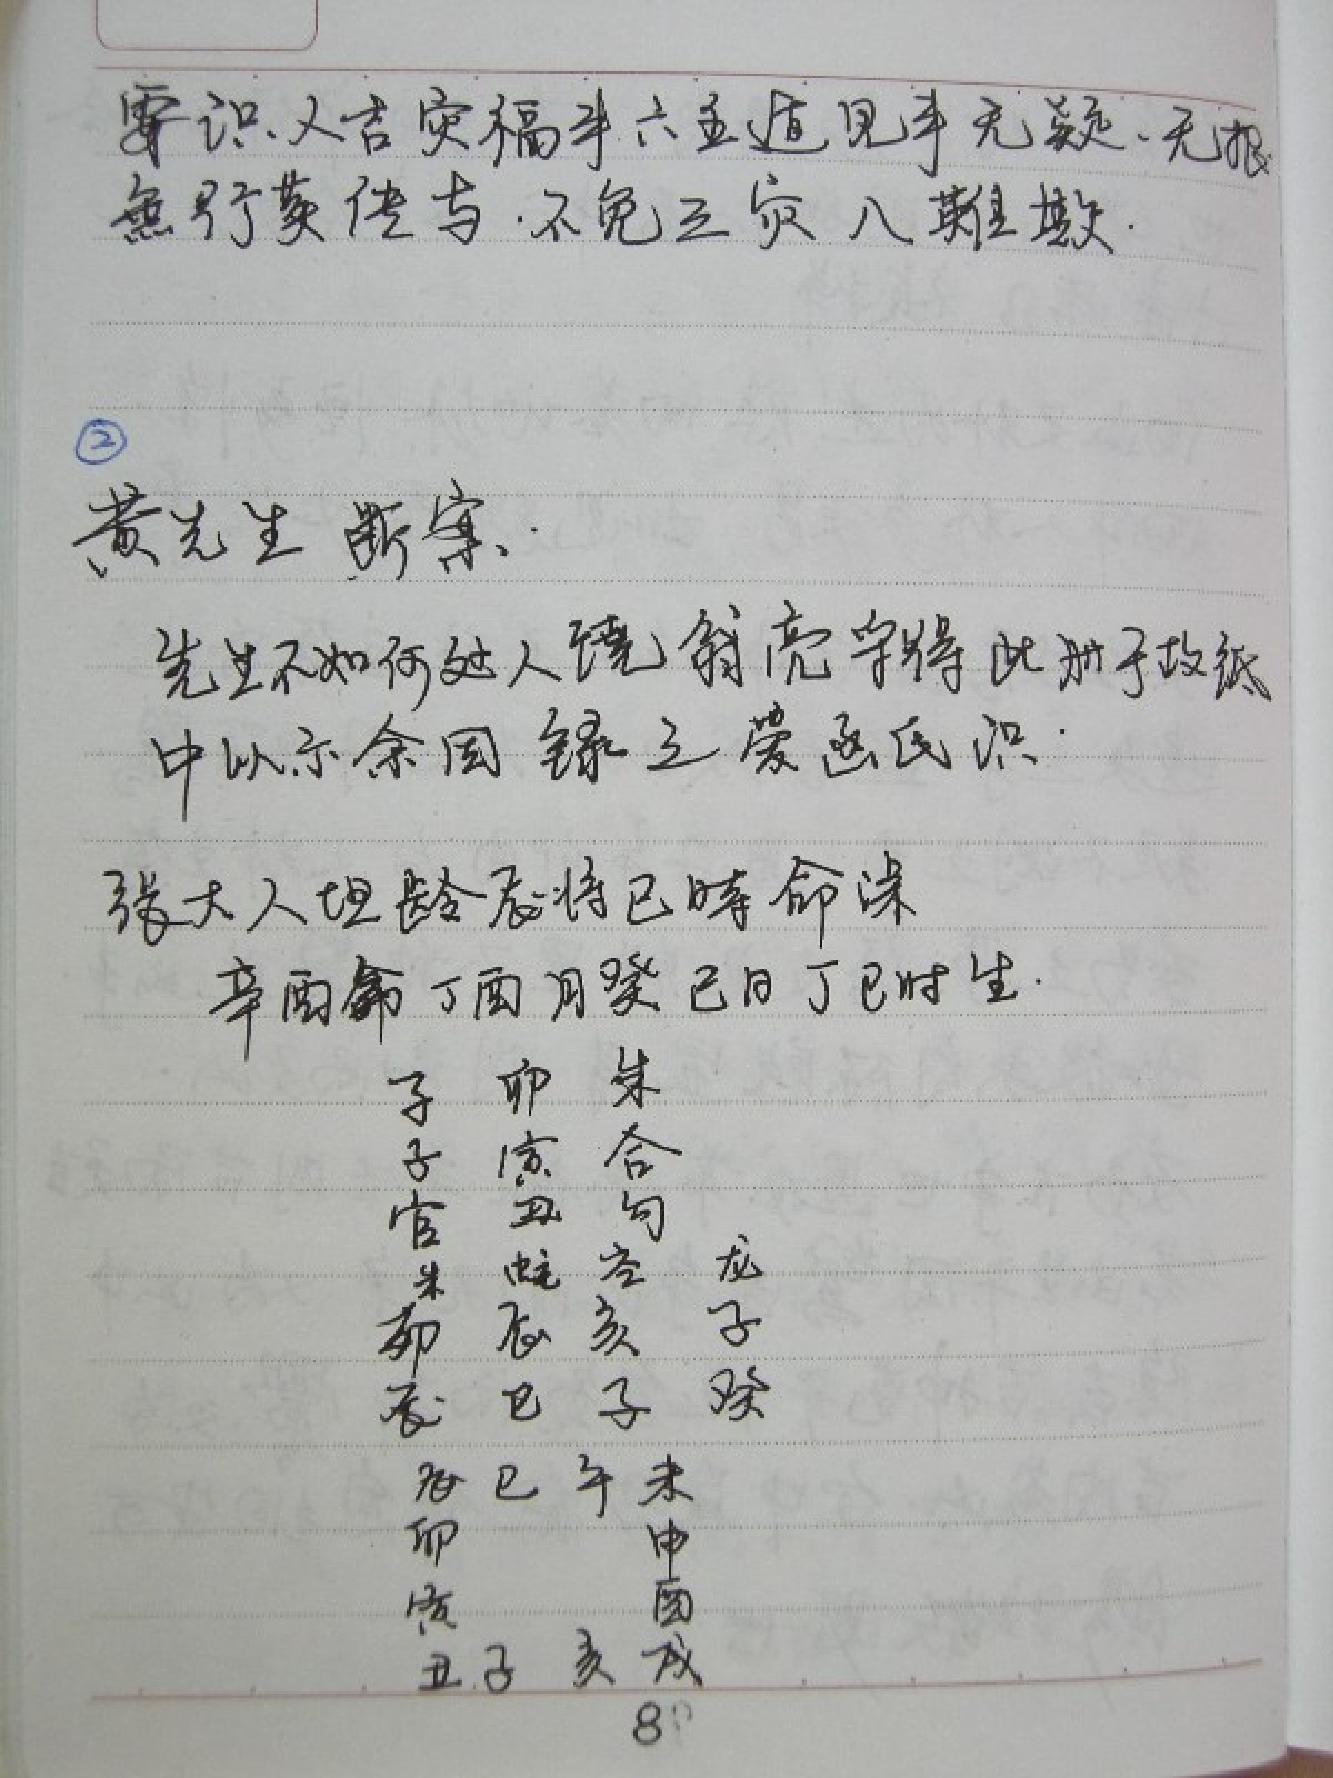 要识.乂吉灾福年六壬道见年无疑.无根
無行莫传与.不免三灾八難欺.
②
黄先生 断案.
先生不如何处人晓翁亮字得此册于故纸
中以示余因録之蒙函氏识.
張大人坦龄辰将巳時命课
辛酉命丁酉月癸巳日丁巳时生.
子 卯 朱
子 寅 合
官 丑 勾
朱 蛇 空 龙
卯 辰 亥 子
辰 巳 子 癸
辰 巳 午 未
卯 申
寅 酉
丑 子 亥 戌
8